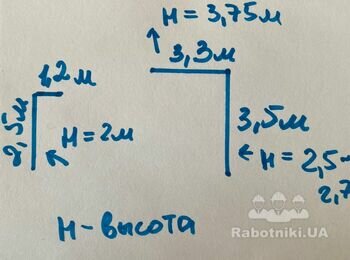 H = 3,75м
3,3м
1,2м
2,5м
H = 2м
3,5м
H = 2,5
2,7
H - высота
Rabotniki.UA